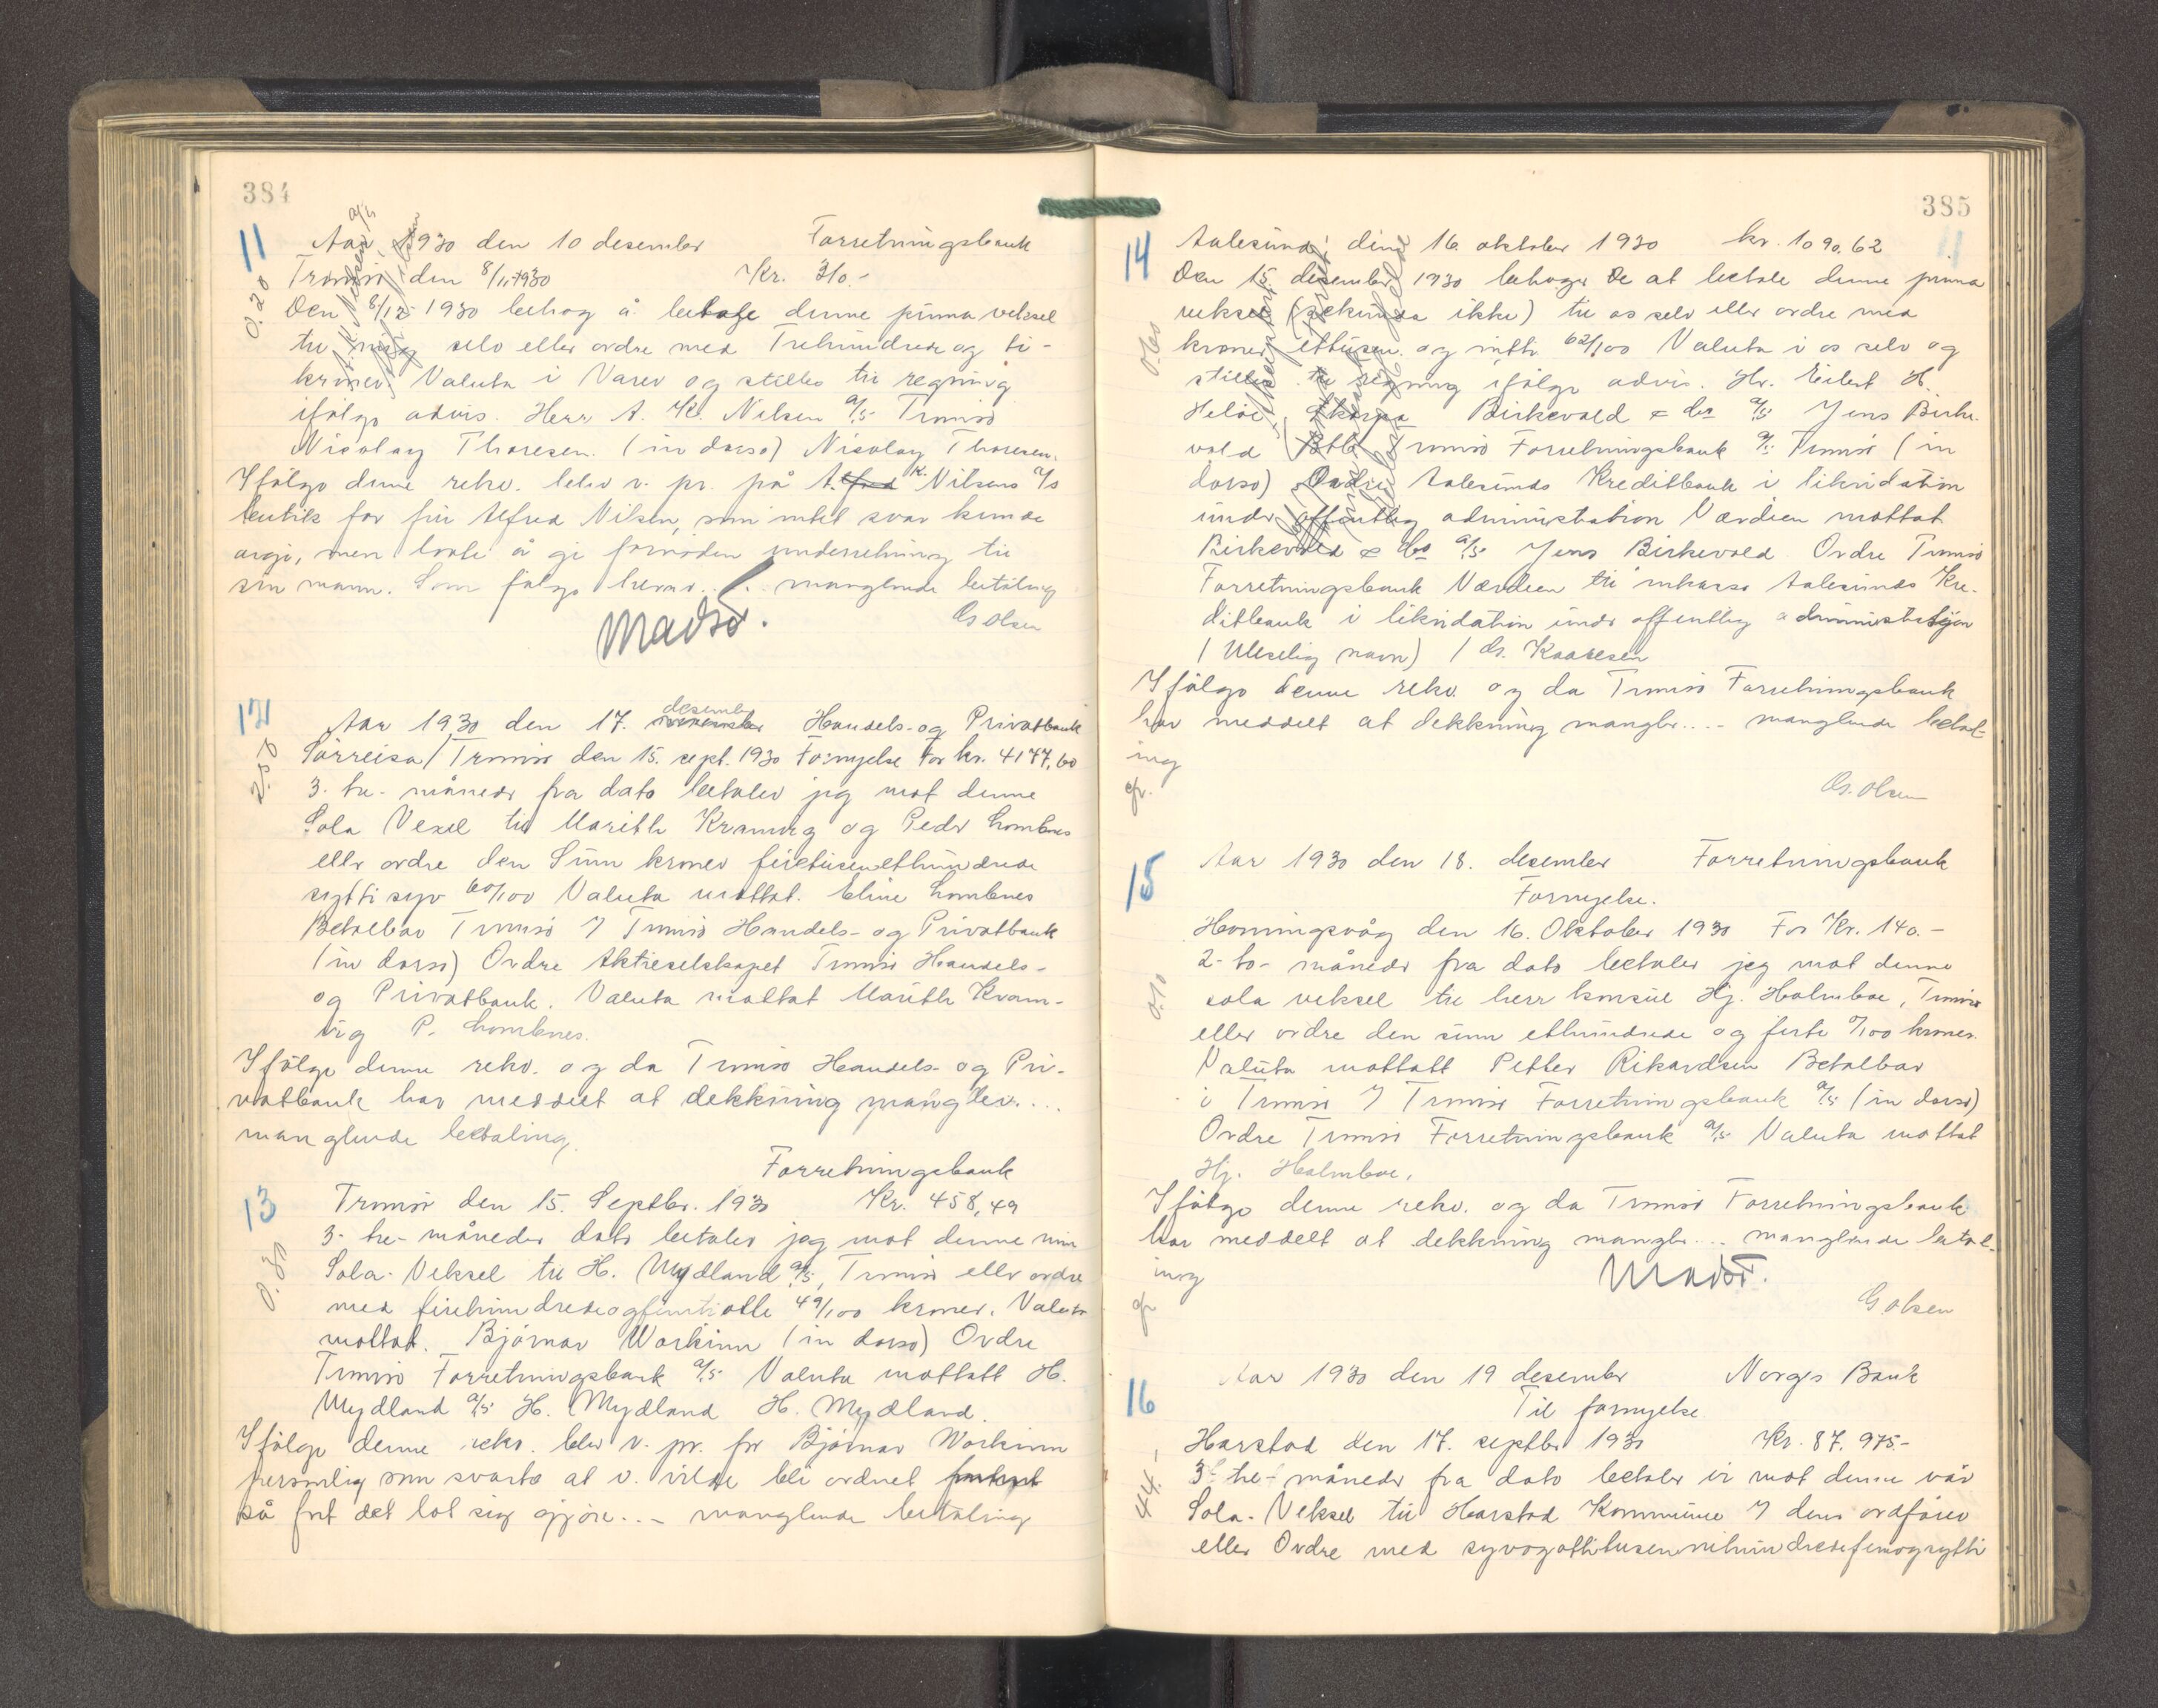 384
11
Aar 1930 den 10 desember Forretningsbank
Tromsö den 8/11 1930 Kr. 310.-
0.20
Den 8/12 1930 behag å betale denne prima veksel
til mig selv eller ordre med Trehundrede og ti-
kroner. Valuta i Varer og stilles til regning
ifölge advis. Herr A. K. Nilsen A/S Tromsö
Nicolay Thoresen. (in dorso) Nicolay Thoresen.
Ifölge denne rekv. blev v. pr. på A. K. Nilsens A/S
butik for fru Alfred Nilsen, som intet svar kunde
avgi, men lovte å gi fornöden underretning til
sin mann. Som fölge herav... manglende betaling
Madsö. G. Olsen
12
Aar 1930 den 17. desember Handels- og Privatbank
2.50
Sörreisa/Tromsö den 15. sept. 1930 Fornyelse For kr. 4177,60
3. tre- måneder fra dato betaler jeg mot denne
Sola Vexel til Marith Kramvig og Peder Lombnes
eller ordre den Sum kroner firetusenethundrede
sytti syv 60/100 Valuta mottat. Eline Lombnes
Betalbar Tromsö I Tromsö Handels- og Privatbank
(in dorso) Ordre Aktieselskapet Tromsö Handels-
og Privatbank. Valuta mottat Marith Kram-
vig P. Lombnes.
Ifölge denne rekv. og da Tromsö Handels- og Pri-
vatbank har meddelt at dekkning mangler....
manglende betaling.
Forretningsbank
13
Tromsö den 15. Septbr. 1930 Kr. 458,49
0.30
3- tre- måneder dato betaler jeg mot denne min
Sola-Veksel til H. Mydland A/S, Tromsö eller ordre
med firehundredeogfemtiotte 49/100 kroner. Valuta
mottat. Björnar Workinn (in dorso) Ordre
Tromsö Forretningsbank A/S Valuta mottatt H.
Mydland A/S H. Mydland H. Mydland.
Ifölge denne rekv. blev v. pr. for Björnar Workinn
personlig som svarte at v. vilde bli ordnet
så fort det lot sig gjöre... - manglende betaling
385
14
Aalesund, den 16 oktober 1930 kr. 1090,62
Den 15 desember 1930 behager De at betale denne prima
veksel (sekunda ikke) til os selv eller ordre med
0.60
kroner ettusen og nitti 62/100 Valuta i os selv og
stilles til regning ifölge advis. Hr. Eilert H.
Helöe, Skarpa Birkevold & Co A/S Jens Birke-
vold Btlb Tromsö Forretningsbank A/S Tromsö (in
dorso) Ordre Aalesunds Kreditbank i likvidation
under offentlig administration Værdien mottat
Birkevold & Co A/S Jens Birkevold Ordre Tromsö
Forretningsbank Værdien til inkasso Aalesunds Kre-
ditbank i likvidation under offentlig administrasjon
(Uleselig navn) / G. Kaaresen
Ifölge denne rekv. og da Tromsö Forretningsbank
har meddelt at dekkning mangler.... - manglende betal-
ing
G. Olsen
15
Aar 1930 den 18. desember Forretningsbank
Fornyelse.
Honningsvåg den 16. Oktober 1930 For Kr. 140.-
2- to- måneder fra dato betaler jeg mot denne
0.10
sola veksel til herr konsul Hj. Holmboe, Tromsö
eller ordre den sum ethundrede og firti 0/100 kroner.
Valuta mottatt Petter Rikardsen Betalbar
i Tromsö I Tromsö Forretningsbank A/S (in dorso)
Ordre Tromsö Forretningsbank A/S Valuta mottat
Hj. Holmboe.
Ifölge denne rekv. og da Tromsö Forretningsbank
har meddelt at dekkning mangler.... manglende betal-
ing
Madsö.
G. Olsen
Aar 1930 den 19 desember Norges Bank
16
Til fornyelse
Harstad den 17. septbr 1930 Kr. 87.975.-
44.-
3- tre- måneder fra dato betaler vi mot denne vår
Sola-Veksel til Harstad Kommune I dens ordförer
eller Ordre med syvogottitusennihundredefemogsytti